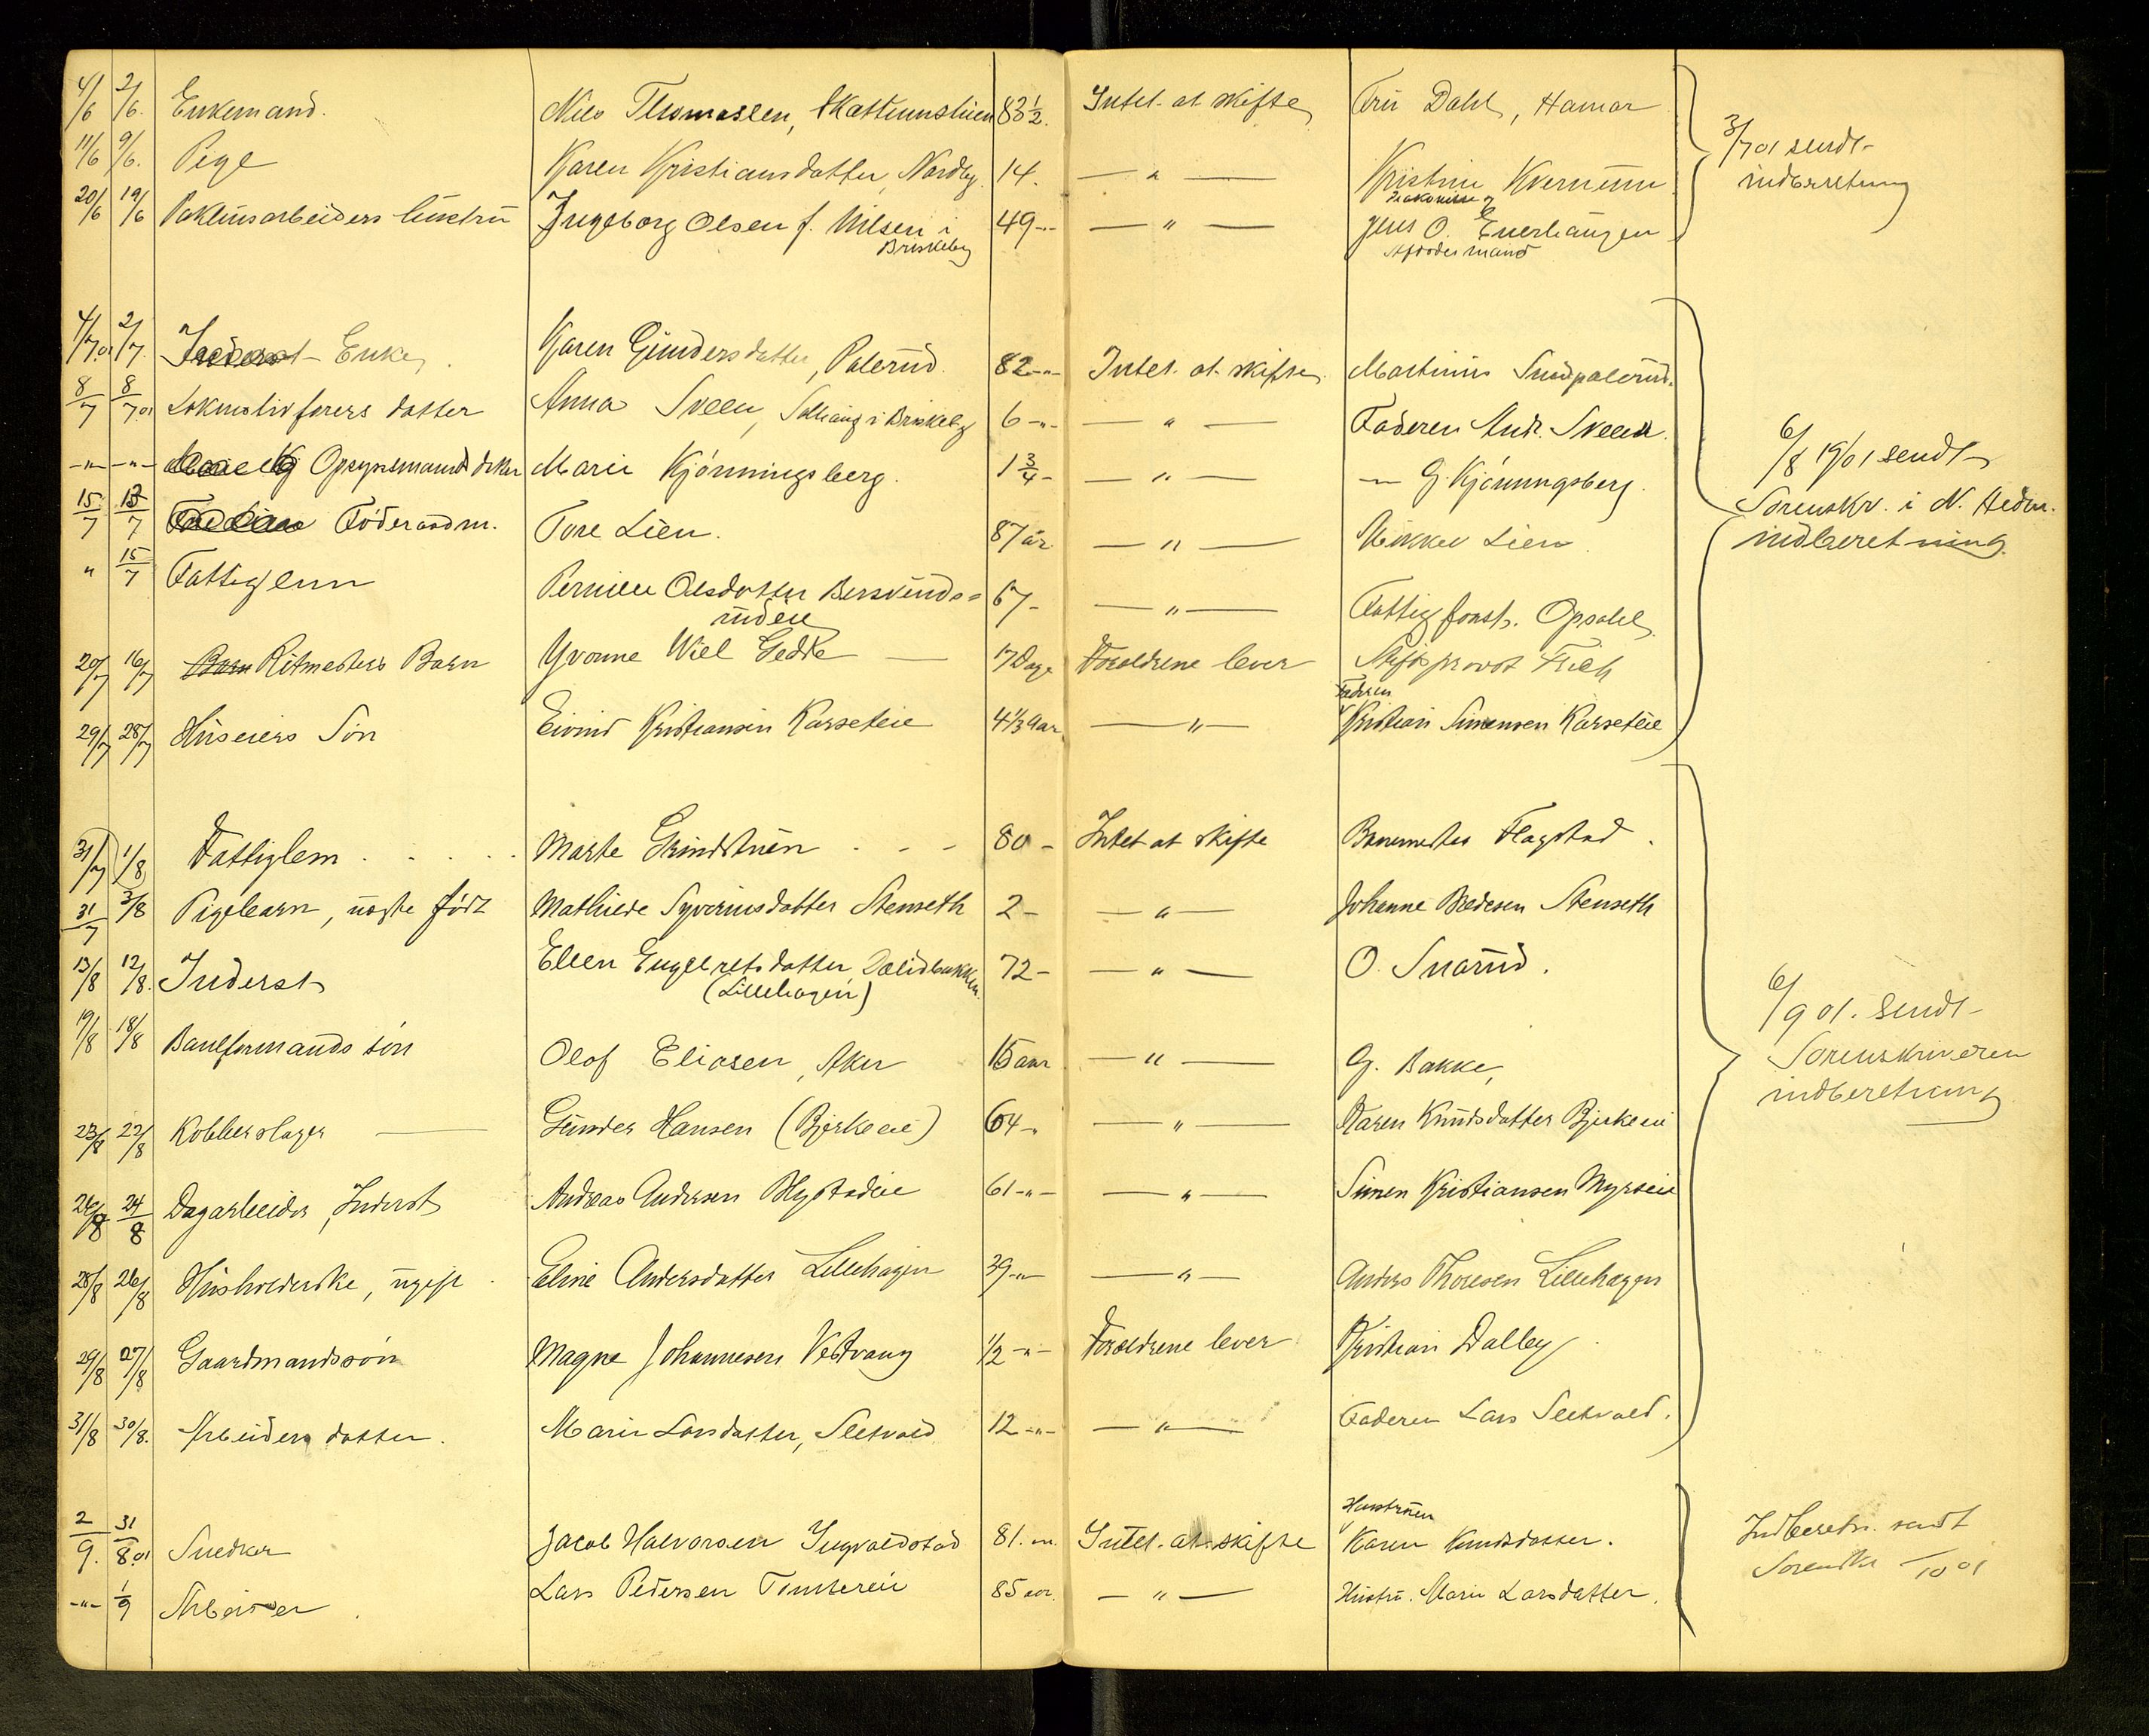 4/6 2/6. Enkemand. Nils Thomassen, Kattumstuen 83½. Intet at skifte Fru Dahl, Hamar
11/6 9/6. Pige Karen Kristiansdatter, Nordby. 14. — " — Kristine Kvernum
3/7 01 sendt indberetning
20/6 19/6 Paklensarbeiders hustru Ingeborg Olsen f. Nilsen i Briskeby 49-"- — " — Jens O. Enerhaugen
Afdødes mand
4/7.01 2/7. Inderst Enke. Karen Gundersdatter, Palerud. 82-"- Intet at skifte. Martinus Snipalerud.
8/7 8/7.01 Lokomotivførers datter Anna Sveen, Solhaug i Briskeby 6-"- — " — Faderen Andr. Sveen.
-"- -"- Opsynsmands datter Marie Kjønningsberg. 1¾- — " — — G. Kjønningsberg.
6/8 1901 sendt
Sorenskr. i N. Hedm.
indberetning.
15/7 13/7 Føderaadm. Tore Lien. 87 år — " — Mikkel Lien.
" 15/7 Fattiglem Pernille Olsdatter Bersvends= 67- — " — Fattigforst. Opsahl
20/7 16/7 Barn Ritmesters Barn Yvonne Wiel Gedde — 17 Dage Foræltrene lever Stiftsprovst Frich
29/7 28/7 Huseiers Søn Eivind Kristiansen Karseteie 4⅓ Aar — " — Faderen Kristian Simensen Karseteie
31/7 1/8 Fattiglem . . . . . Marte Grindstuen - - - 80- Intet at skifte Banemester Flagstad.
31/7 3/8 Pigebarn, uægte født Mathilde Syverinsdatter Stenseth 2- — " — Johanne Bredesen Stenseth
13/8 12/8. Inderst Ellen Engebretsdatter Dælidbakken. 72- — " — O. Snarud.
(Lillehagen)
6/9 01. sendt
Sorenskriveren
indberetning
19/8 18/8 Baneformands søn Olof Eliasen, Aker 15 aar — " — G. Bakke,
23/8 22/8 Kobberslager — Gunder Hansen (Bjerkeeie) 64-" — " — Karen Knudsdatter Bjerkeeie
26/8 24/8 Dagarbeider, Inderst Andreas Andersen Blystadeie 61-"- — " — Simen Kristiansen Myrseie
28/8 26/8 Husholderske, ugift. Eline Andersdatter Lillehagen 39-"- — " — Anders Thoresen Lillehagen
29/8 27/8 Gaardmandssøn Magne Johannesen Vestvang ½-"- Forældrene lever Kristian Dalby.
31/8 30/8. Arbeiders datter. Marie Larsdatter, Sletvold 12-"- — " — Faderen Lars Sletvold.
2/9. 31/8.01 Snedker Jacob Halvorsen Ingvaldstad 81.-"- Intet at skifte Hustruen Karen Knudsdatter.
Indberetn. sendt
-"- 1/9 Arbeider. Lars Pedersen Tømtereie 85 aar. — " — Hustru. Marie Larsdatter.